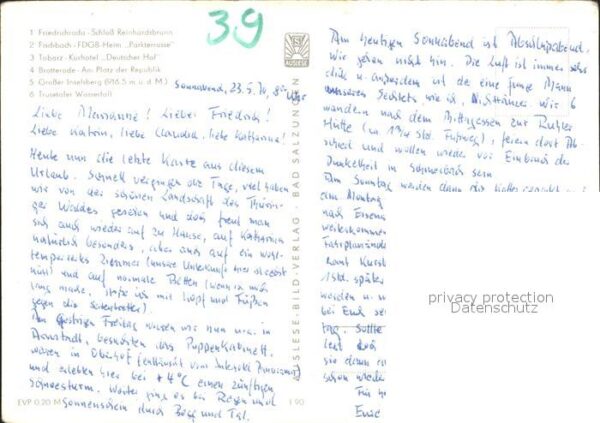 1 Friedrichroda - Schloß Reinhardsbrunn
2 Fischbach - FDGB-Heim „Parkterrasse"
3 Tabarz - Kurhotel „Deutscher Hof"
4 Brotterode - Am Platz der Republik
5 Großer Inselsberg (916.5 m ü. d. M.)
6 Trusetaler Wasserfall
39
AUSLESE
Sonnabend, 23.5.70, Uhr
Liebe Marianne! Lieber Friedrich!
Liebe Katrin, liebe Claudia, liebe Katharina!
Heute nun die letzte Karte aus diesem
Urlaub. Schnell vergingen die Tage, viel haben
wir von der schönen Landschaft des Thürin-
ger Waldes gesehen und doch freut man
sich auch wieder auf zu Hause, auf Katharina
natürlich besonders, aber auch auf ein wohl-
temperiertes Zimmer (unsere Unterkunft hier ist
und auf normale Betten (wenn ich mich
lang mache, stoße ich mit Kopf und Füßen
gegen die
Am gestrigen Freitag waren wir nun u.a. in
Arnstadt, besuchten das Puppenkabinett,
waren in Oberhof (enttäuscht vom Interhotel Panorama)
und erlebten hier bei +4°C einen zünftigen
Schneesturm. Weiter ging es bei Regen und
Sonnenschein durch Berg und Tal.
EVP 0.20 M
AUSLESE-BILD-VERLAG · BAD SALZUNGEN
I 90
Am heutigen Sonnabend ist Abschlußabend.
Wir gehen nicht hin. Die Luft ist immer sehr
dick u. außerdem ist da eine junge Mann
unseres wie ich, Nichttänzer. Wir 6
wandern nach dem Mittagessen zur Ruhlaer
Hütte (ca. 1 Std. Fußweg), feiern dort Ab-
schied und wollen wieder vor Einbruch der
Dunkelheit in sein
Am Sonntag werden dann die Koffer gepackt
am Montag
nach Eisena
weiterkommen
Fahrplanände
samt Kurst
1 Std. später
werden u. w
bei Euch se
tag. Sollte
legt doch
sie dann
schon wieder
Für h
Eure
privacy protection
Datenschutz